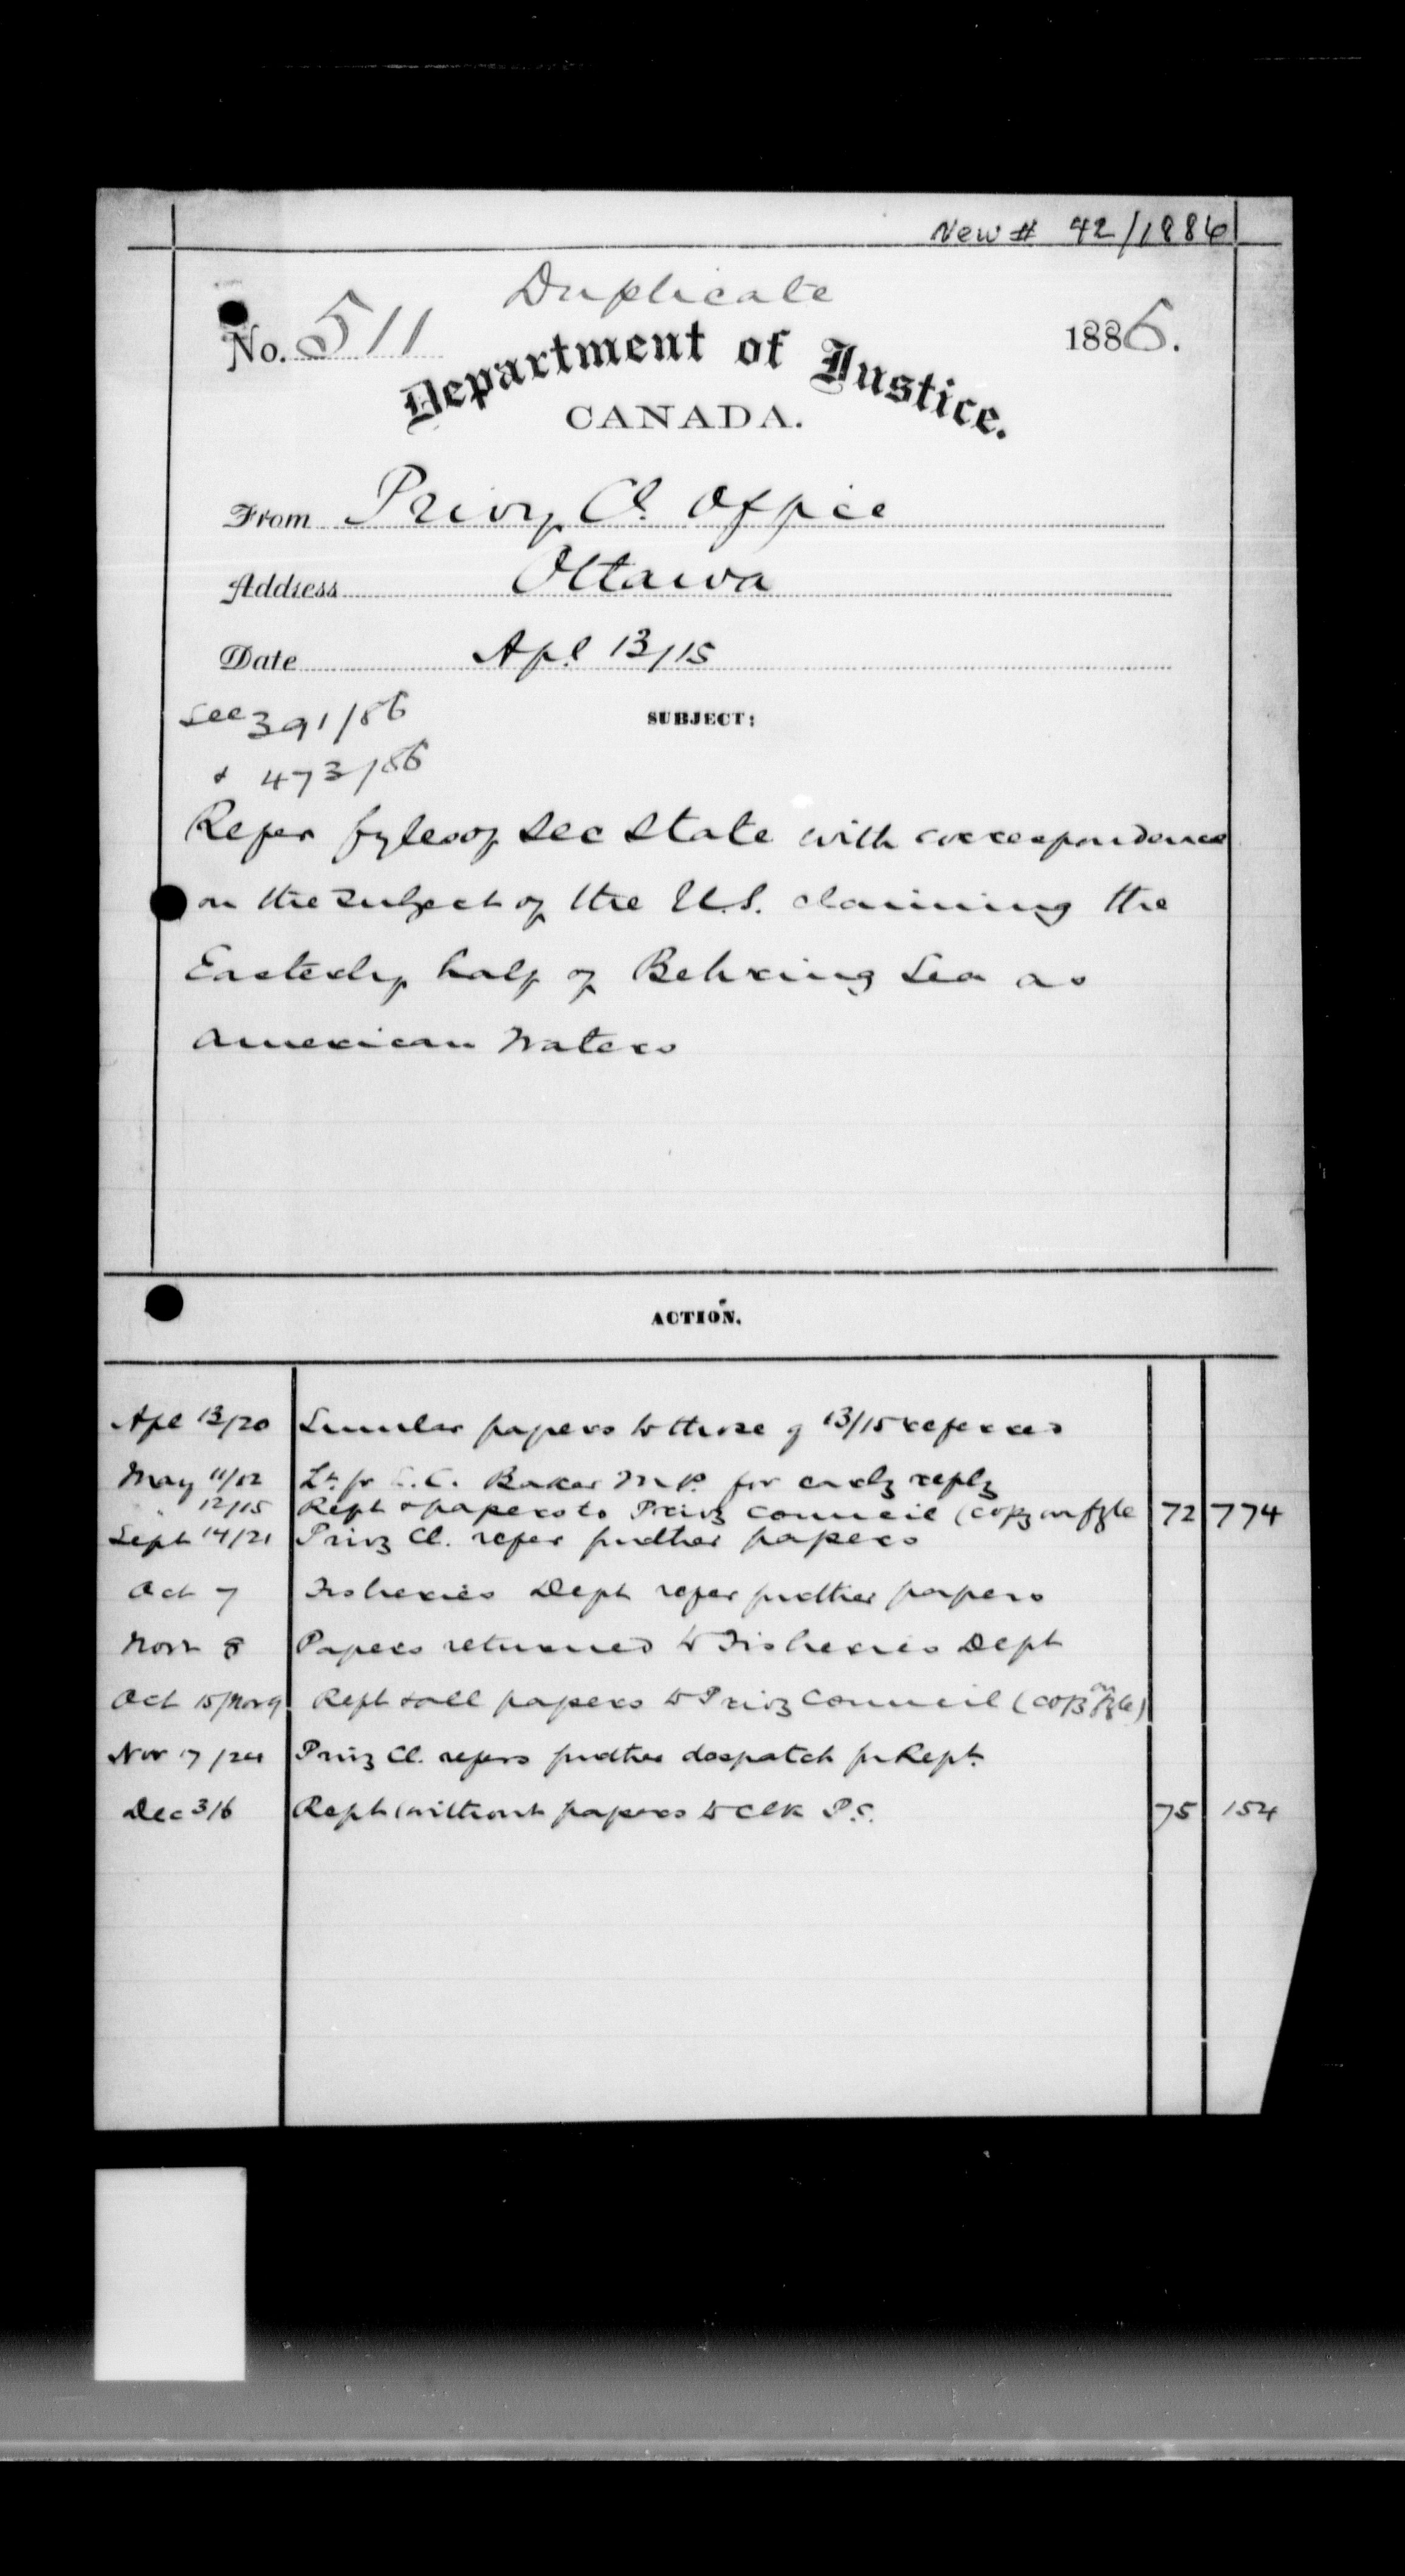 New # 42/1886
Duplicate
No. 511 1886.
Department of Justice.
CANADA.
From Privy Cl. Office
Address Ottawa
Date Apl 13/15
See 391/86
SUBJECT:
& 473/86
Refer fyles of Sec State with correspondence
on the subject of the U.S. claiming the
Easterly half of Behring Sea as
American Waters
ACTION.
Apl 13/20 Similar papers to those of 13/15 referred
May 11/12 Lr. fr E.C. Baker M.P. for early reply
" 12/15 Rept & papers to Privy Council (copy on fyle 72 774
Sept 14/21 Privy Cl. refer further papers
Oct 7 Fisheries Dept refer further papers
Novr 8 Papers returned to Fisheries Dept
Oct 15/Nov 9 Rept & all papers to Privy Council (copy on fyle)
Nov 17/24 Privy Cl. refers further despatch for Rept.
Dec 3/6 Rept (without papers to Clk P.C. 75 154